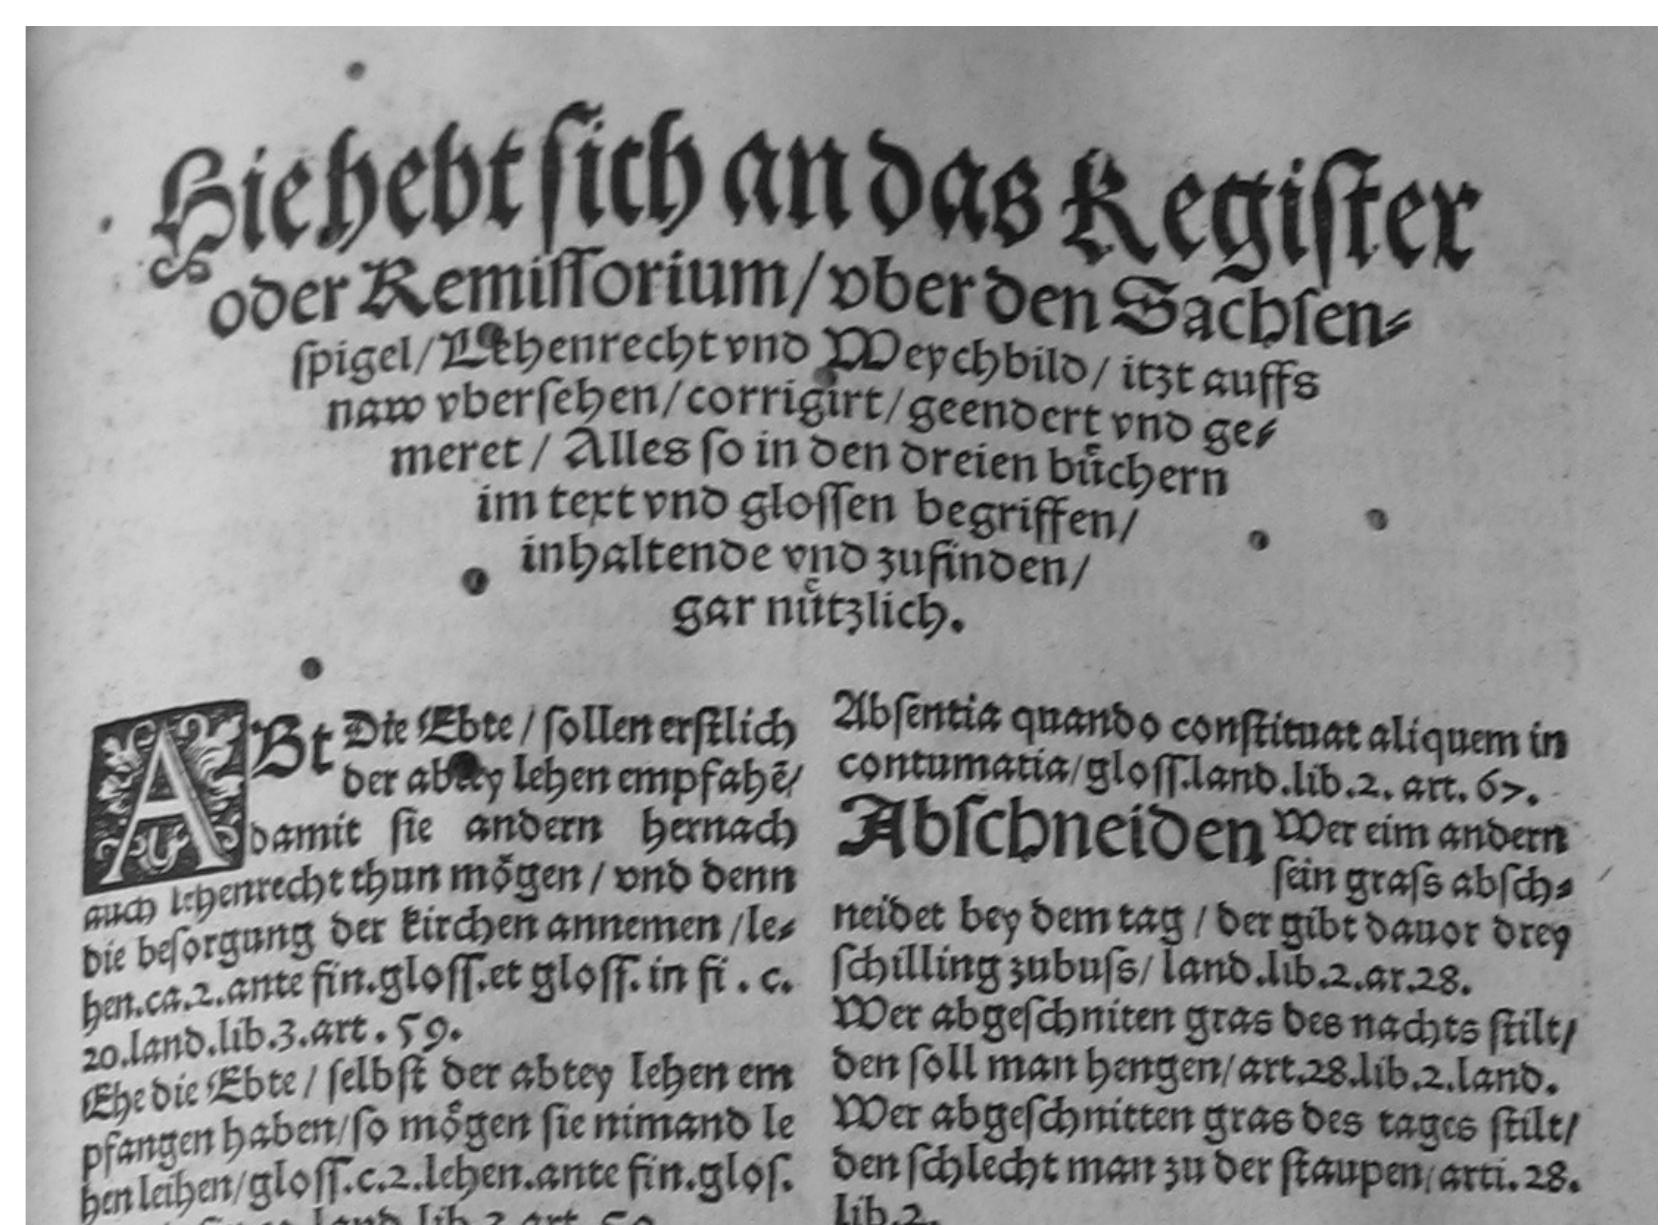 Hie hebt sich an das Register
oder Remissorium / vber den Sachsen⸗
spigel / Lehenrecht vnd Weychbild / itzt auffs
naw vbersehen / corrigirt / geendert vnd ge⸗
meret / Alles so in den dreien buͤchern
im text vnd glossen begriffen /
inhaltende vnd zufinden /
gar nuͤtzlich.
ABt Die Ebte / sollen erstlich
der abtey lehen empfahẽ /
damit sie andern hernach
auch lehenrecht thun moͤgen / vnd denn
die besorgung der kirchen annemen / le⸗
hen.ca.2.ante fin.gloss.et gloss. in fi . c.
20.land.lib.3.art . 59.
Ehe die Ebte / selbst der abtey lehen em
pfangen haben / so moͤgen sie nimand le
hen leihen / gloss.c.2.lehen.ante fin.glos.
land.lib.3.art. 59
Absentia quando constituat aliquem in
contumatia / gloss.land.lib.2. art. 67.
Abschneiden Wer eim andern
sein grass absch⸗
neidet bey dem tag / der gibt dauor drey
schilling zubuss / land.lib.2.ar.28.
Wer abgeschniten gras des nachts stilt /
den soll man hengen / art.28.lib.2.land.
Wer abgeschnitten gras des tages stilt /
den schlecht man zu der staupen / arti. 28.
lib.2.